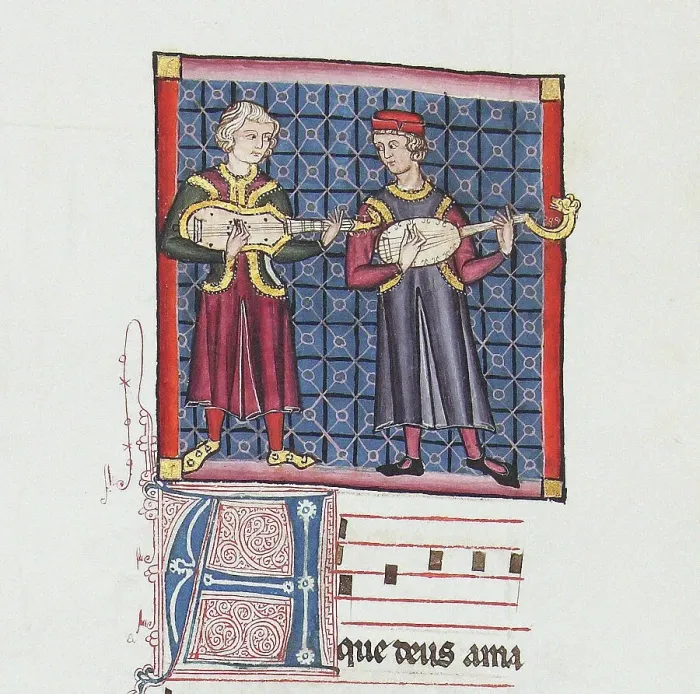 A que deus ama